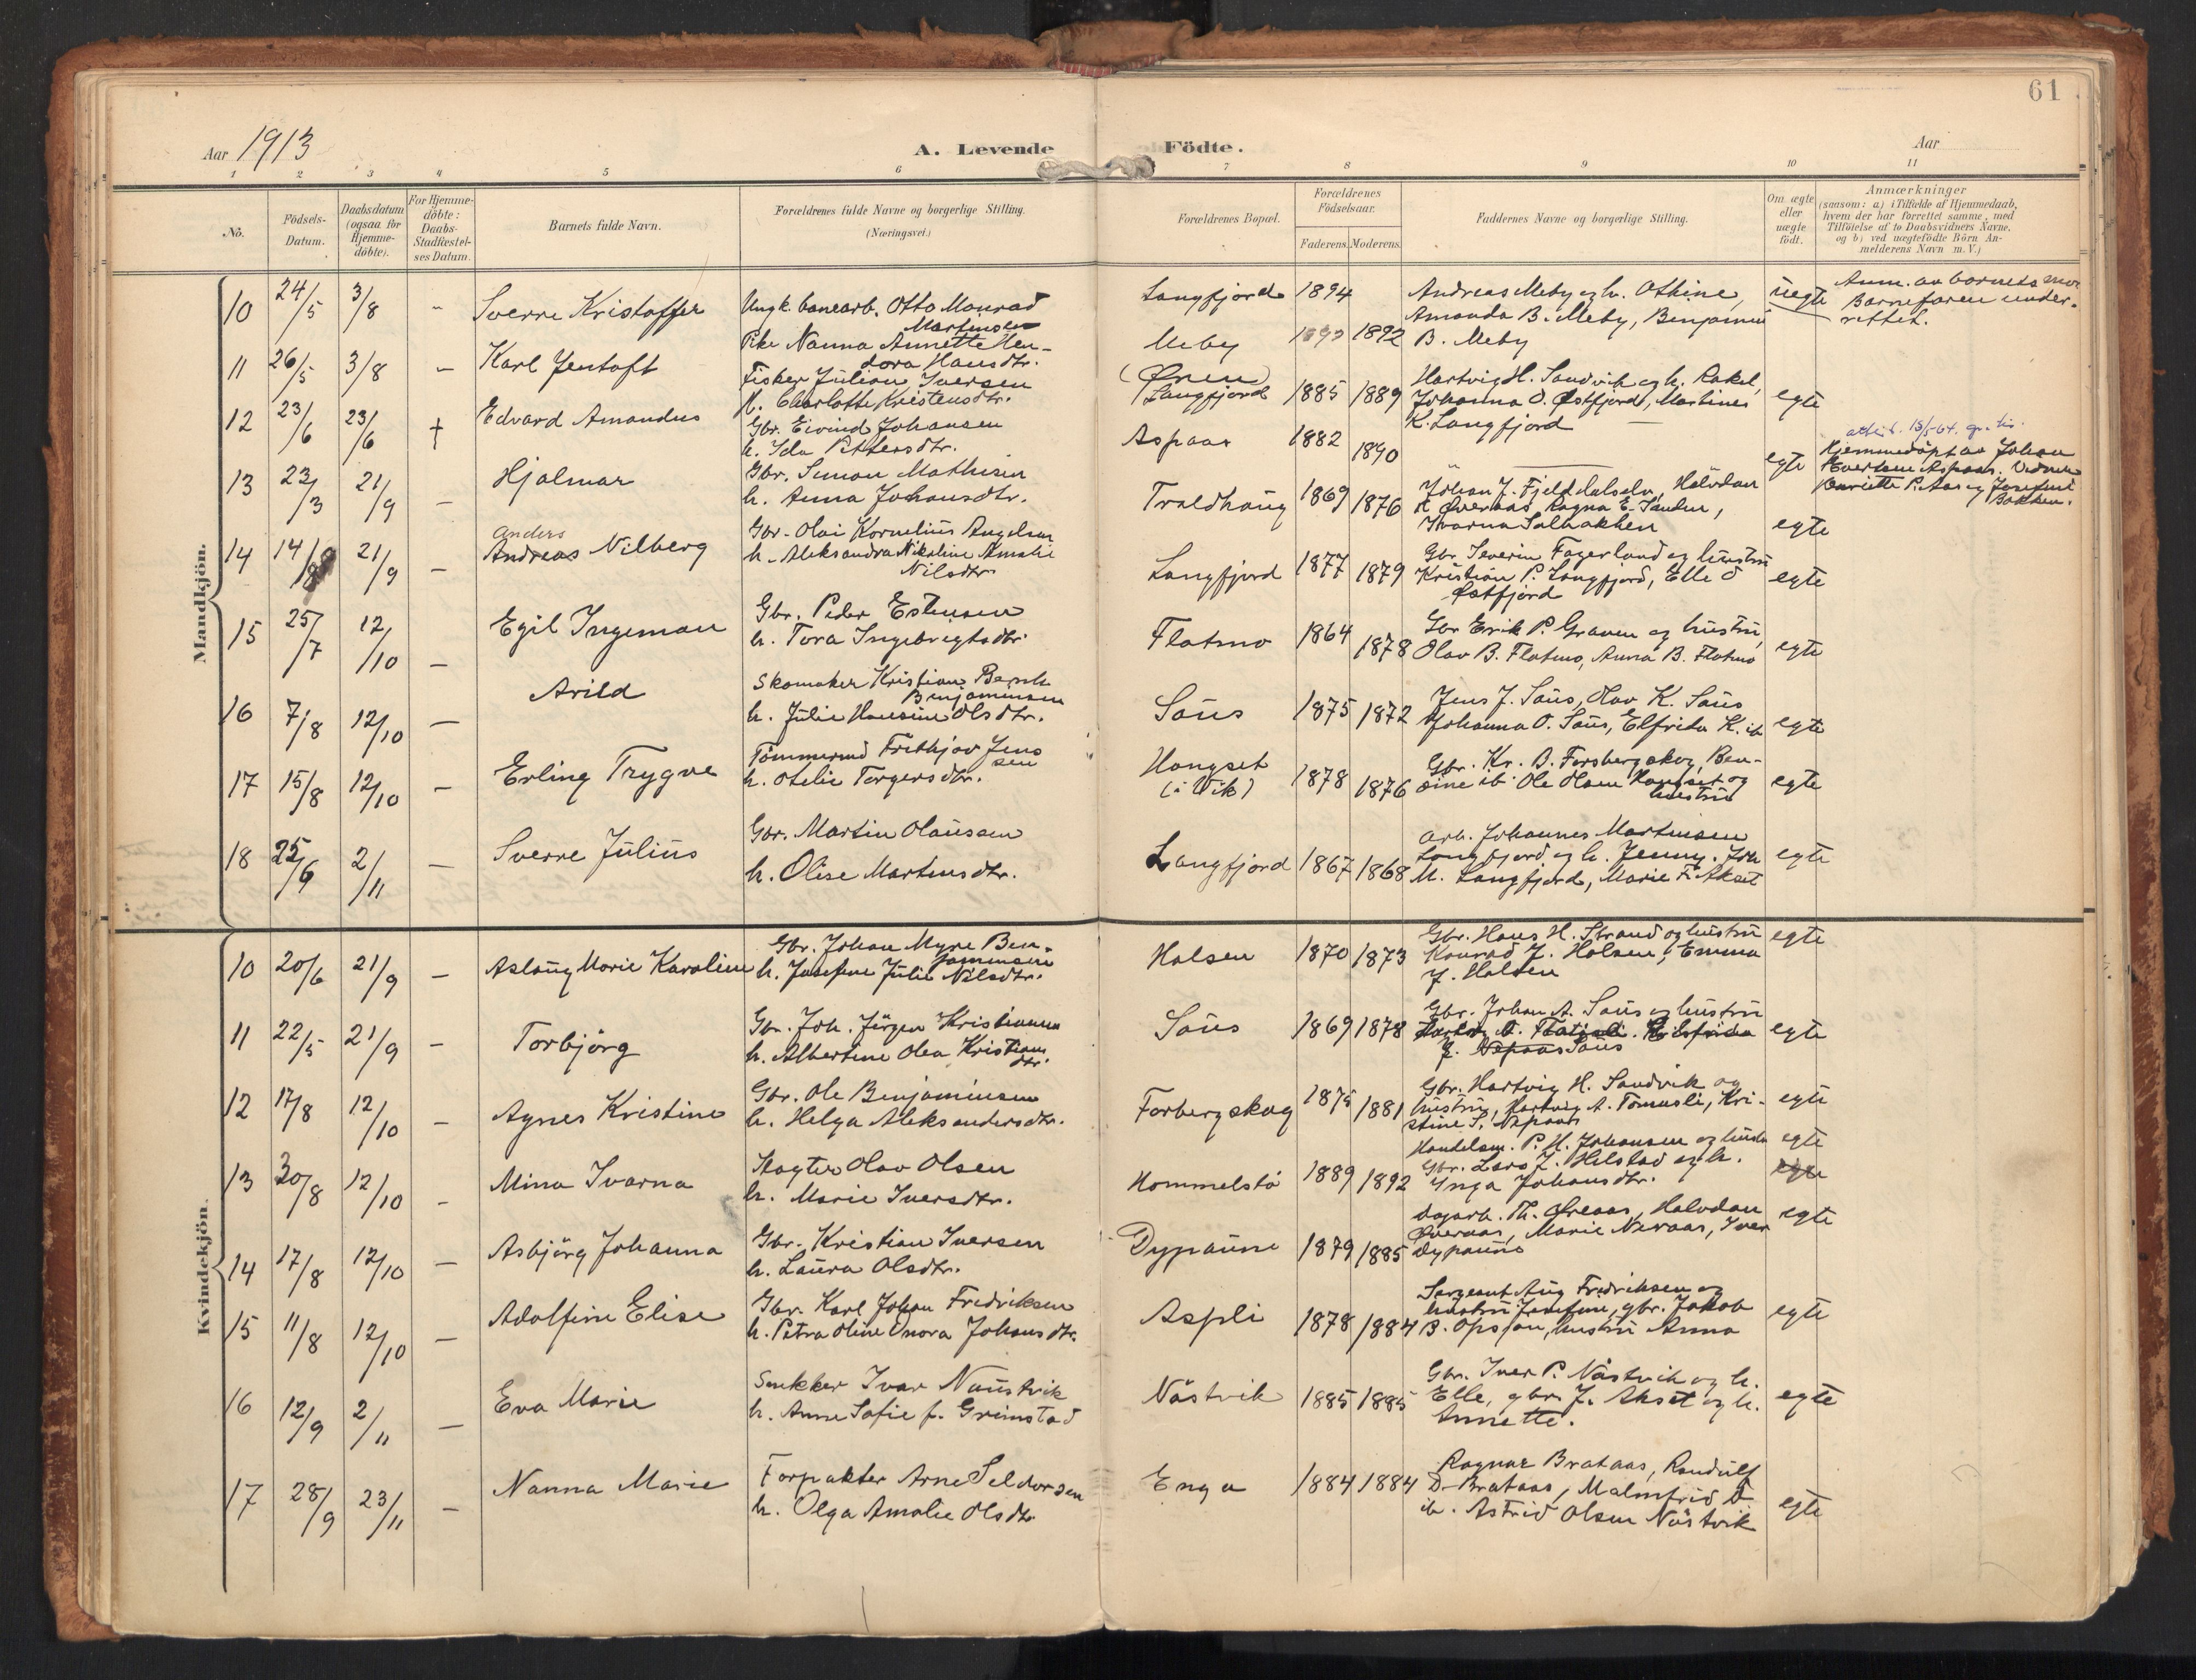 61
Aar 1913
A. Levende Födte.
Aar
1 2 3 4 5 6 7 8 9 10 11
No.
Födsels-Datum.
Daabsdatum (ogsaa for Hjemme-döbte).
For Hjemme-döbte: Daabs-Stadfæstel-ses Datum.
Barnets fulde Navn.
Forældrenes fulde Navne og borgerlige Stilling.
(Næringsvei.)
Forældrenes Bopæl.
Forældrenes Födselsaar.
Faderens. Moderens.
Faddernes Navne og borgerlige Stilling.
Om ægte eller uægte födt.
Anmærkninger
(saasom: a) i Tilfælde af Hjemmedaab,
hvem der har forrettet samme, med
Tilföielse af to Daabsvidners Navne,
og b) ved uægtefödte Börn An-
melderens Navn m. V.)
Mandkjön.
10 24/5 3/8 - Sverre Kristoffer
Ungk. banearb. Otto Monrad
Martensen
Pike Nanna Annette Hen-
dora Hansdtr.
Langfjord 1894
Meby 1892
Andreas Meby og h. Othine,
Amanda B. Meby, Benjamin
B. Meby
uegte
Anm. av barnets mor
Barnefaren under-
rettet.
11 26/5 3/8 - Karl Jentoft
Fisker Julian Iversen
h. Charlotte Kristensdtr.
(Øren)
Langfjord 1885 1889
Hartvig H. Sandvik og h. Rakel,
Johanna O. Østfjord, Martines
K. Langfjord
egte
12 23/6 23/6 † Edvard Amandus
Gbr. Eivind Johansen
h. Ida Pettersdtr.
Aspaas 1882 1890
egte
Hjemmedöpt av Johan
Evertsen Aspaas. Vidner
13 23/3 21/9 - Hjalmar
Gbr. Simon Mathisen
h. Anna Johansdtr.
Traldhaug 1869 1876
Ragna E. Sanden,
Ivarna Solbakken
egte
14 14/8 21/9 - Anders
Andreas Nilberg
Gbr. Olai Kornelius Angelsen
h. Aleksandra Nikoline Amalie
Nilsdtr
Langfjord 1877 1879
Gbr Severin Fagerland og hustru
Kristian P. Langfjord, Elle O
Østfjord
egte
15 25/7 12/10 - Egil Ingeman
Gbr. Peder Estensen
h. Tora Ingebregtsdtr.
Flatmo 1864 1878
Gbr Erik P. Graven og hustru,
Olav B. Flatmo, Anna B. Flatmo
egte
16 7/8 12/10 - Arild
Skomaker Kristian Bernh
Benjaminsen
h. Julie Hansine Olsdtr.
Saus 1875 1872
Jens J. Saus, Olav K. Saus
Johanna O. Saus, Elfrida K. ib
egte
17 15/8 12/10 - Erling Trygve
Tömmermd Frithjov Jens
sen
h. Otelie Torgersdtr.
Hongset
(i Vik) 1878 1876
Gbr. Kr. B. Forsbergskog, Ben-
sine ib Ole Olsen Hongset og
hustru
egte
18 25/6 2/11 - Sverre Julius
Gbr. Martin Olausen
h. Olise Martinsdtr.
Langfjord 1867 1868
Arb. Johannes Martinsen
Langfjord og h. Jenny. Joh
M. Langfjord, Marie F. Akset
egte
Kvindekjön.
10 20/6 21/9 - Aslaug Marie Karoline
Gbr. Johan Myre Ben-
jaminsen
h. Josefine Julie Nilsdtr.
Halsen 1870 1873
Gbr. Hans H. Strand og hustru
Konrad J. Halsen, Emma
J. Halsen
egte
11 22/5 21/9 - Torbjörg
Gbr. Joh. Jörgen Kristiansen
h. Albertine Olea Kristians
dtr.
Saus 1869 1878
Gbr. Johan A. Saus og hustru
Saus
egte
12 17/8 12/10 - Agnes Kristine
Gbr. Ole Benjaminsen
h. Helga Aleksandersdtr.
Forbergskog 1875 1881
Gbr. Hartvig H. Sandvik og
hustru, Hartvig A. Tömmesli, Kri-
stine S. Nepaas
egte
13 30/8 12/10 - Mina Ivarna
Vagter Olav Olsen
h. Marie Iversdtr.
Hommelstö 1889 1892
Handelsm. P. H. Johansen og hustru
Gbr. Lars J. Hilstad og h.
Inga Johansdtr.
egte
14 17/8 12/10 - Asbjörg Johanna
Gbr. Kristian Iversen
h. Laura Olsdtr.
Dypaune 1879 1885
Dagarb. Th. Øveraas, Halvdan
Øveraas, Marie Neraas, Iver
Dypaune
egte
15 11/8 12/10 - Adolfine Elise
Gbr. Karl Johan Fredriksen
h. Petra Oline Enora Johansdtr.
Aspli 1878 1884
Sergeant Aug Fredriksen og
hustru Josefine, gbr. Jakob
B. Opsjön, hustru Anna
egte
16 12/9 2/11 - Eva Marie
Snekker Ivar Naustvik
h. Anne Sofie f. Grimstad
Nöstvik 1885 1885
Gbr. Iver P. Nöstvik og h.
Elle, gbr. J. Akset og h.
Annette.
egte
17 28/9 23/11 - Nanna Marie
Forpakter Arne Seldorsen
h. Olga Amalie Olsdtr
Enga 1884 1884
Ragnar Brataas, Randulf
D. Brataas, Malmfrid D
ib. Astrid Olsen Nöstvik
egte